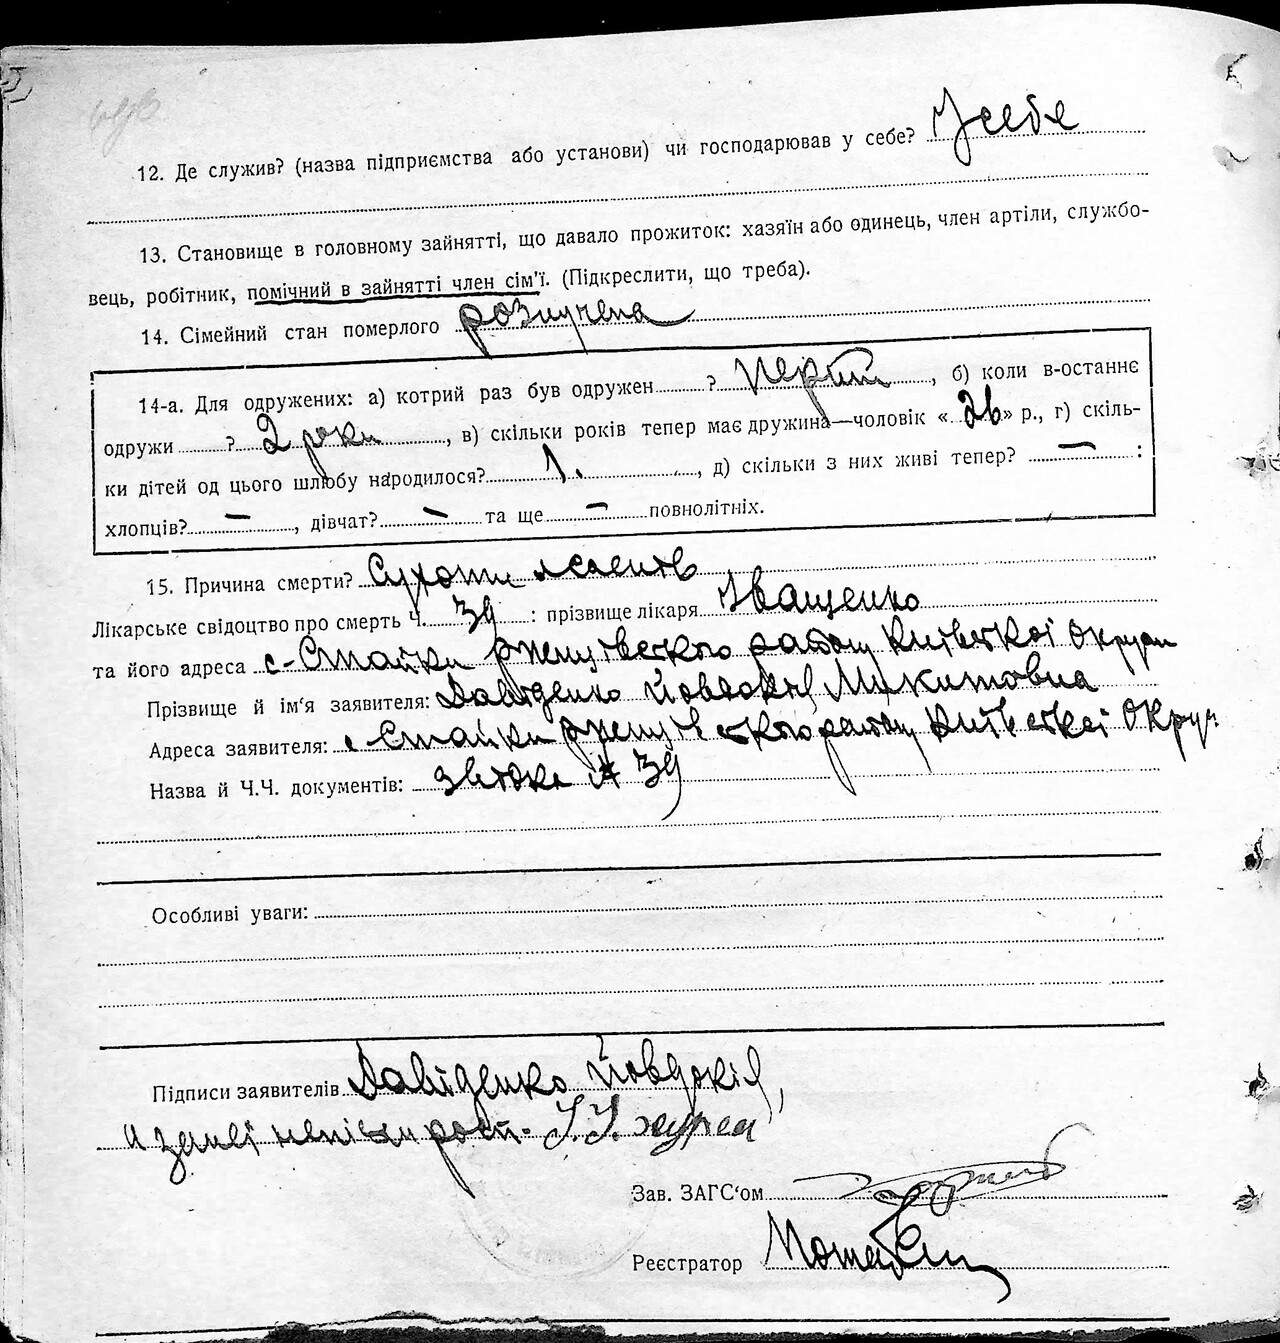 12. Де служив? (назва підприємства або установи) чи господарював у себе? У себе
13. Становище в головному зайнятті, що давало прожиток: хазяїн або одинець, член артіли, службо-
вець, робітник, помічний в зайнятті член сім'ї. (Підкреслити, що треба).
14. Сімейний стан померлого розлучена
14-а. Для одружених: а) котрий раз був одружен ? перший, б) коли в-останнє
одружи ? 2 роки, в) скільки років тепер має дружина—чоловік «26» р., г) скіль-
ки дітей од цього шлюбу народилося? 1., д) скільки з них живі тепер? — :
хлопців? —, дівчат? — та ще — повнолітніх.
15. Причина смерти? Сухоти легенів
Лікарське свідоцтво про смерть Ч. 39 : прізвище лікаря Іващенко
та його адреса с-Стайки Ржищівського району Київської Округи
Прізвище й ім'я заявителя: Давіденко Йовдокія Микитовна
Адреса заявителя: с Стайки Ржищівського району Київської Округ
Назва й Ч.Ч. документів: 39
Особливі уваги:
Підписи заявителів Давіденко Йовдокія,
Зав. ЗАГС'ом
Реєстратор